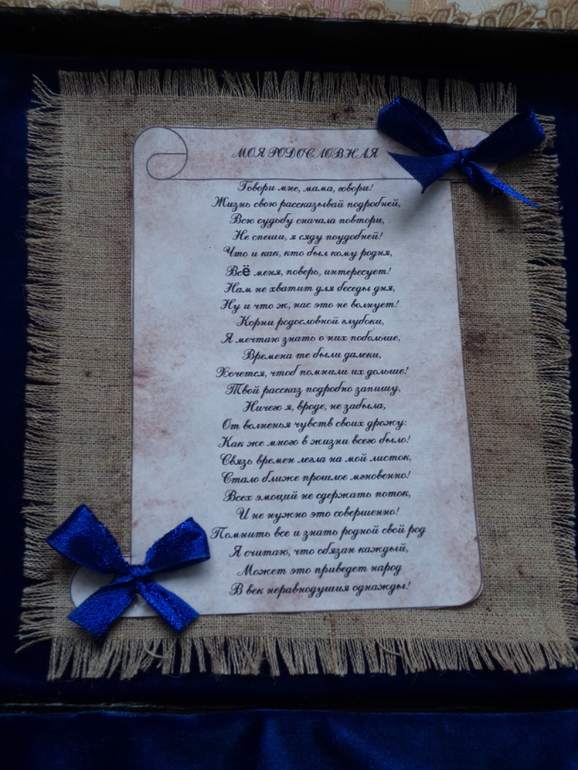 МОЯ РОДОСЛОВНАЯ
Говори мне, мама, говори!
Жизнь свою рассказывай подробней,
Всю судьбу сначала повтори,
Не спеши, я сяду поудобней!
Что и как, кто был кому родня,
Всё меня, поверь, интересует!
Нам не хватит для беседы дня,
Ну и что ж, нас это не волнует!
Корни родословной глубоки,
Я мечтаю знать о них побольше,
Времена те были далеки,
Хочется, чтоб помнили их дольше!
Твой рассказ подробно запишу,
Ничего я, вроде, не забыла,
От волненья чувств своих дрожу:
Как же много в жизни всего было!
Связь времен легла на мой листок,
Стало ближе прошлое мгновенно!
Всех эмоций не сдержать поток,
И не нужно это совершенно!
Помнить все и знать родной свой род
Я считаю, что обязан каждый,
Может это приведет народ
В век неравнодушия однажды!